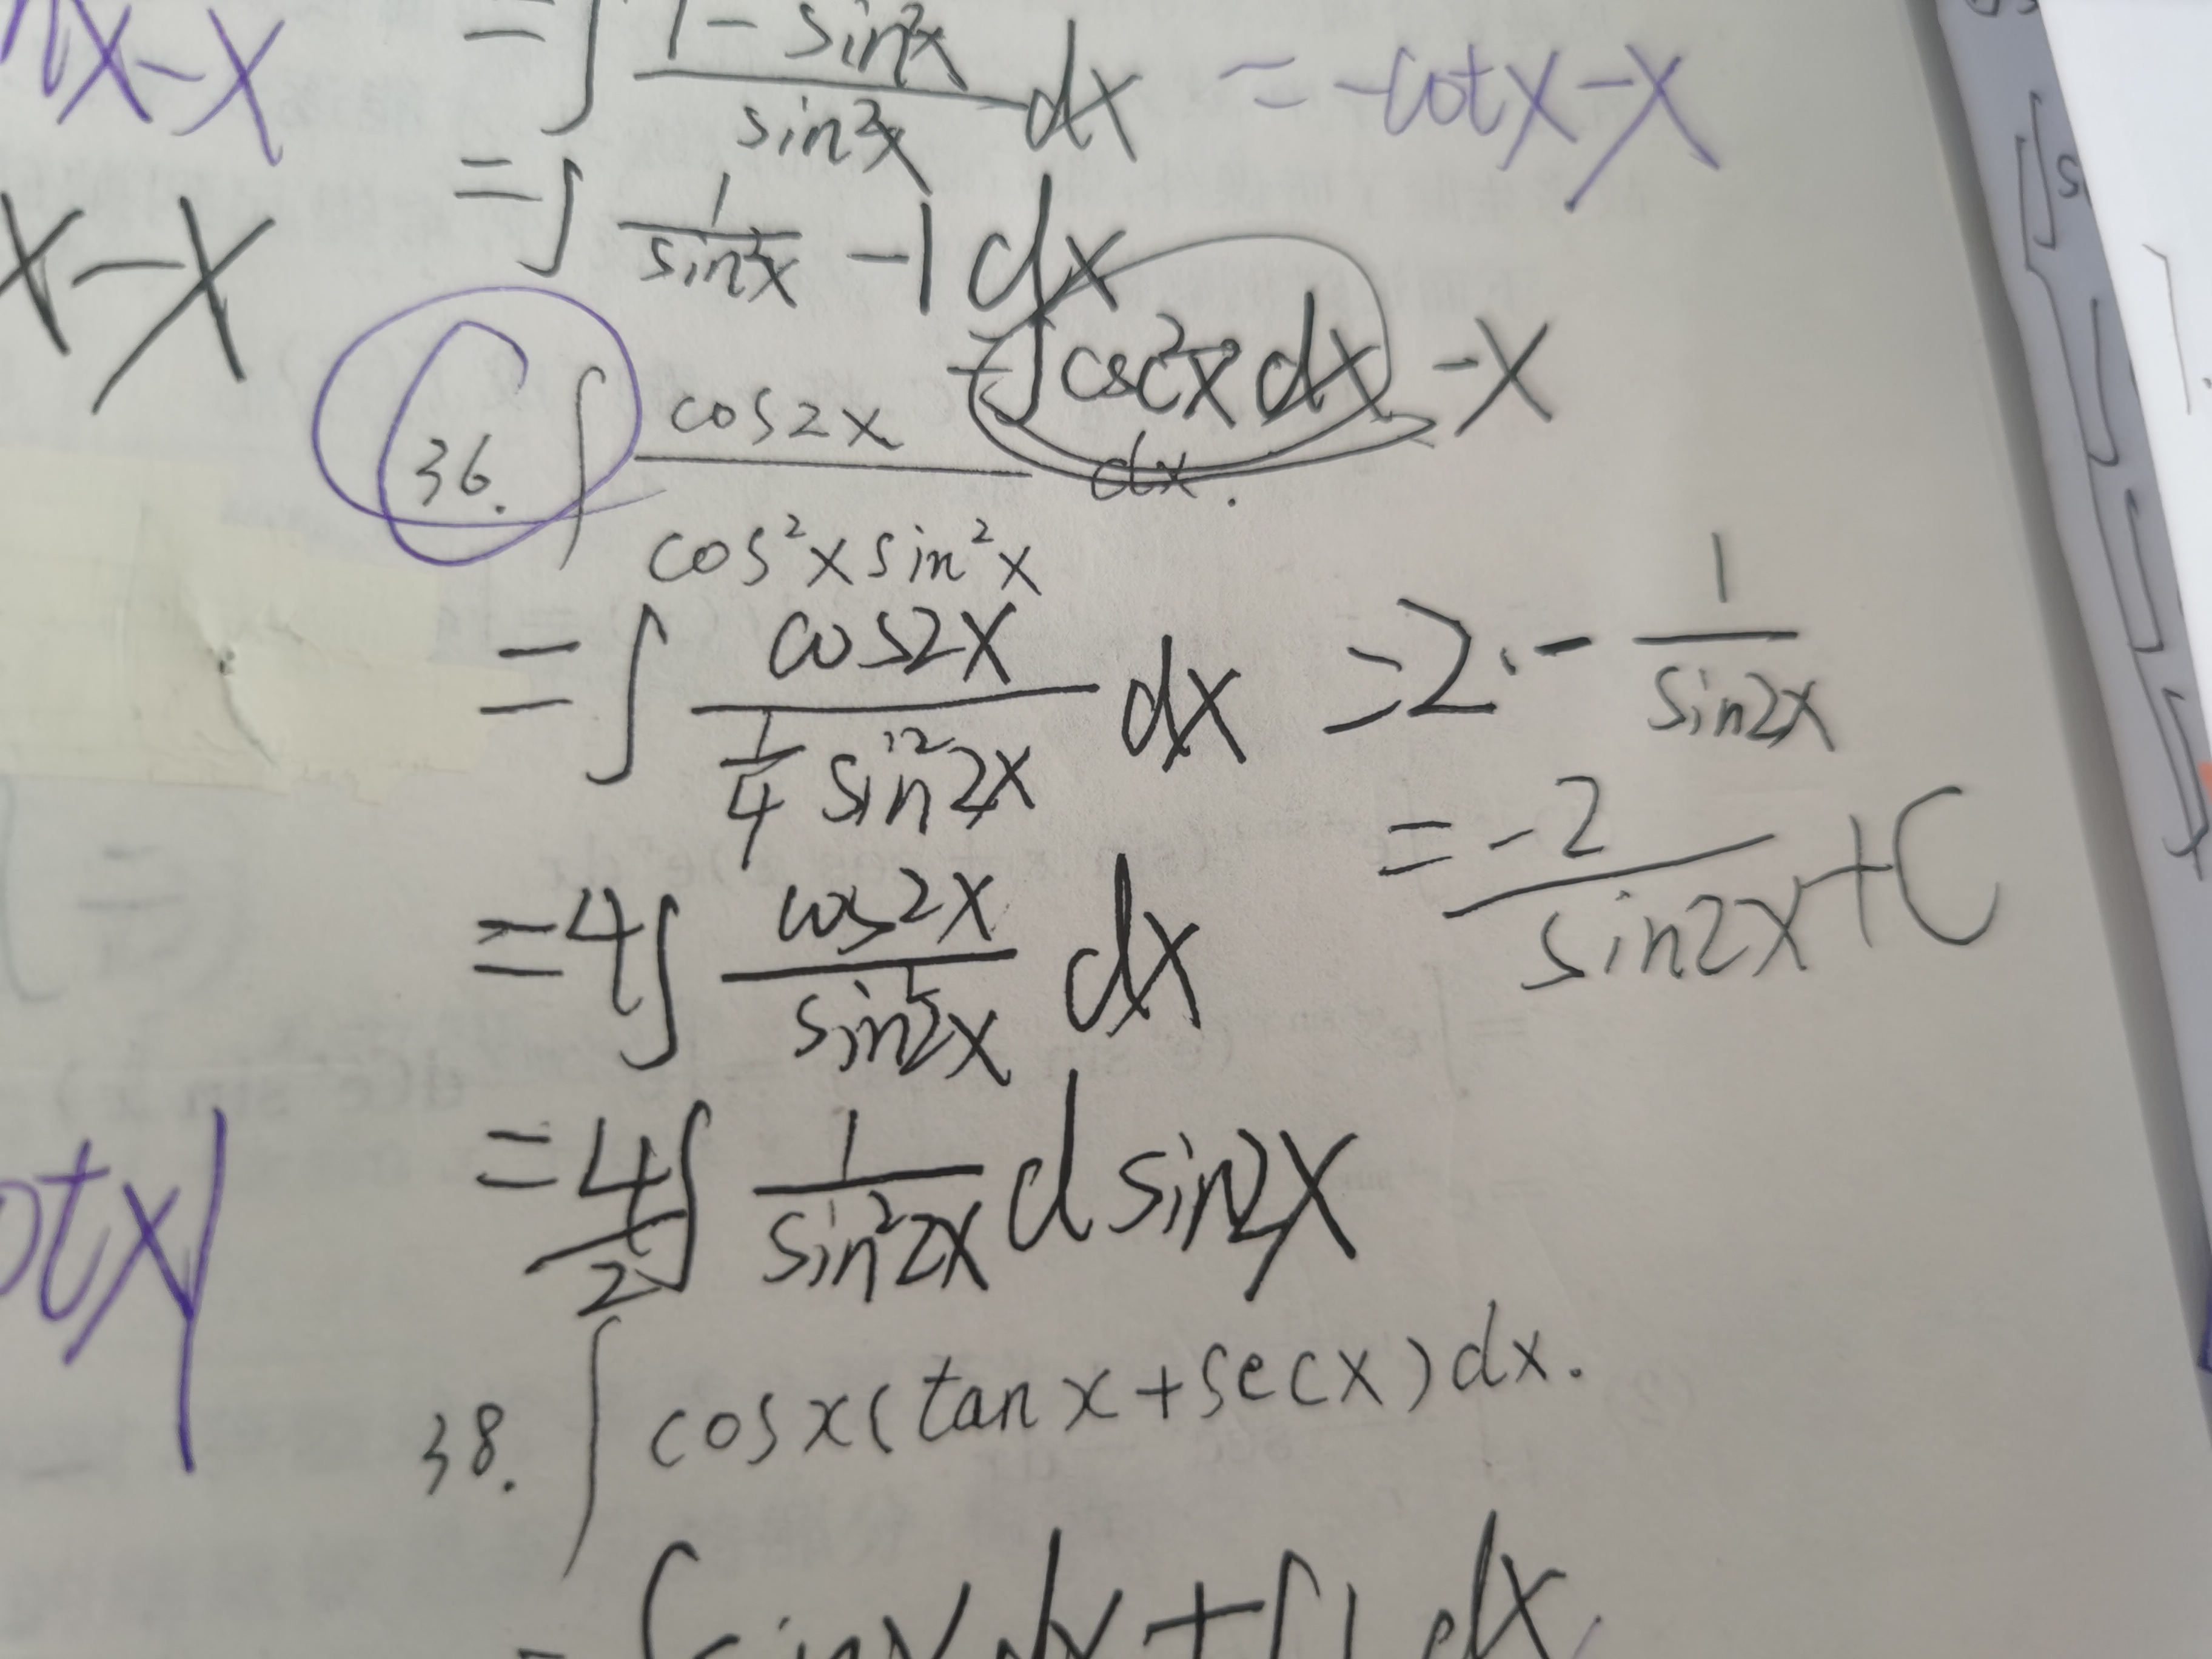 = ∫ (1 - sin²x)/(sin²x) dx = -cotx - x
= ∫ 1/(sin²x) - 1 dx
= ∫ csc²x dx - x
x - x
x - x
36. ∫ cos2x/(cos²x sin²x) dx.
= ∫ cos2x/((1/4) sin²2x) dx = 2· - 1/(sin2x)
= -2/(sin2x) + C
= 4∫ cos2x/(sin²2x) dx
= 4/2 ∫ 1/(sin²2x) d sin2x
otx|
38. ∫ cosx(tanx + secx)dx.
= ∫ sinx dx + ∫ 1 dx